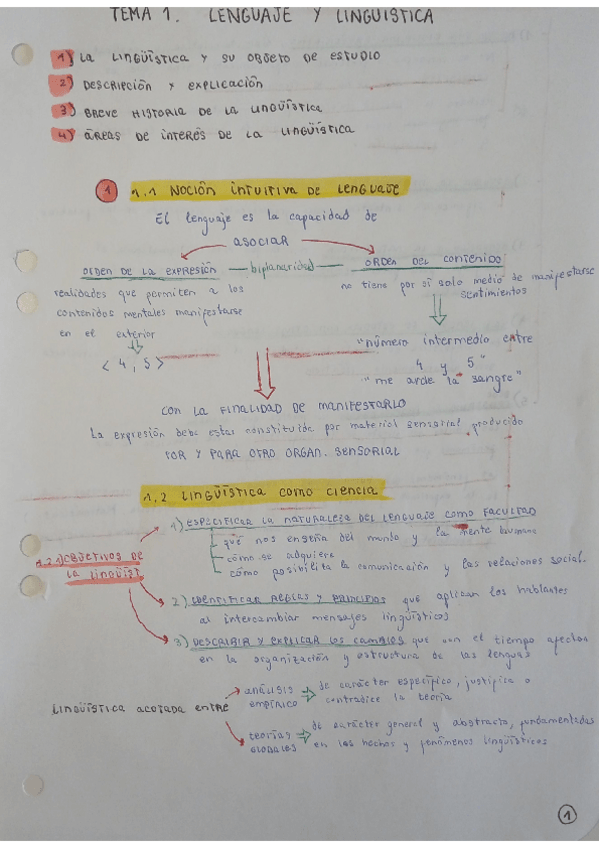 TEMA 1. LENGUAJE Y LINGÜISTICA
1) LA LINGÜÍSTICA Y SU OBJETO DE ESTUDIO
2) DESCRIPCIÓN Y EXPLICACIÓN
3) BREVE HISTORIA DE LA LINGÜÍSTICA
4) ÁREAS DE INTERÉS DE LA LINGÜÍSTICA
1 1.1 NOCIÓN INTUITIVA DE LENGUAJE
El lenguaje es la capacidad de
ASOCIAR
ORDEN DE LA EXPRESIÓN — biplanaridad — ORDEN DEL CONTENIDO
realidades que permiten a los
contenidos mentales manifestarse
en el exterior
< 4, 5 >
no tiene por sí solo medio de manifestarse
sentimientos
"número intermedio entre
4 y 5"
"me arde la sangre"
CON LA FINALIDAD DE MANIFESTARLO
La expresión debe estar constituida por material sensorial producido
POR Y PARA OTRO ORGAN. SENSORIAL
1.2 LINGÜÍSTICA COMO CIENCIA
1.2.1) OBJETIVOS DE
LA LINGÜÍST
1) ESPECIFICAR LA NATURALEZA DEL LENGUAJE COMO FACULTAD
qué nos enseña del mundo y la mente humana
cómo se adquiere
cómo posibilita la comunicación y las relaciones social.
2) IDENTIFICAR REGLAS Y PRINCIPIOS que aplican los hablantes
al intercambiar mensajes lingüísticos
3) DESCRIBIR Y EXPLICAR LOS CAMBIOS que con el tiempo afectan
en la organización y estructura de las lenguas
LINGÜÍSTICA ACOTADA ENTRE
ANÁLISIS EMPÍRICO
de carácter específico, justifica o
contradice la teoría
TEORÍAS GLOBALES
de carácter general y abstracto, fundamentadas
en los hechos y fenómenos lingüísticos
1